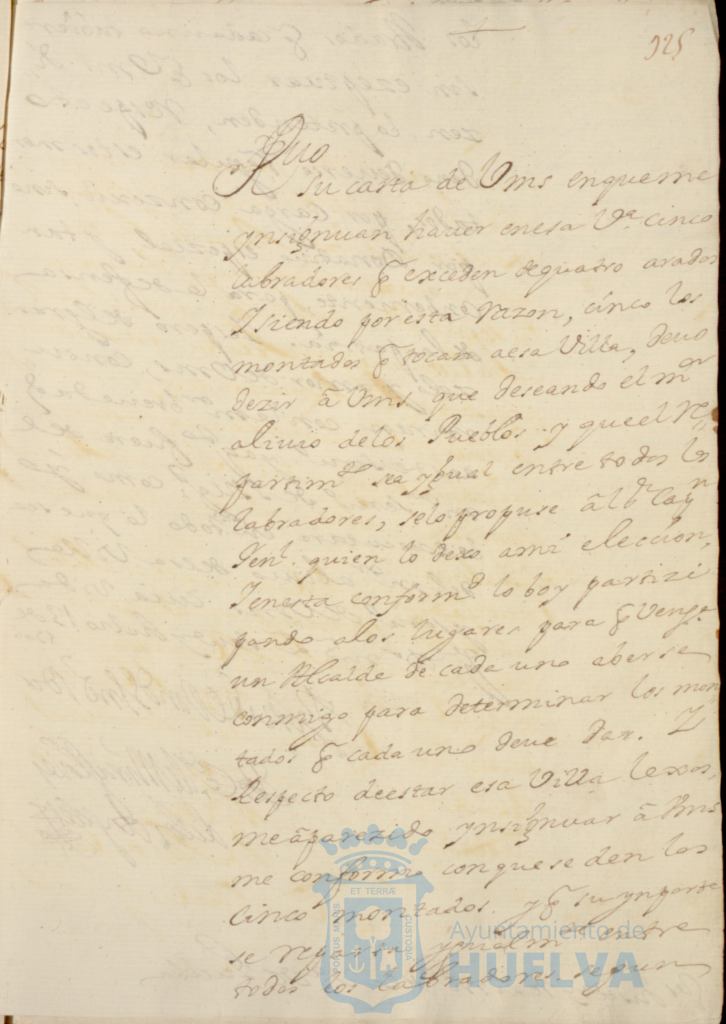 325
Rvo
su carta de Vms enqueme
ynsignuan haver enesa Va cinco
labradores q exceden de quatro arados
Y siendo poresta razon, cinco los
montados q tocan aesa Villa, devo
dezir â Vms que deseando el mor
alivio delos Pueblos y queel Re
partimto sea ygual entre todos los
labradores, selo propuse âl Sr Capn
Genl. quien lo dexo ami eleccion,
Yenesta conformd lo boy partizi
pando alos lugares para q Venga
un Alcalde de cada uno aberse
conmigo para determinar los mon
tados q cada uno deve dar. Y
Respecto deestar esa Villa lexos,
me âparezido ynsignuar â Vms
me conformo conquese den los
Cinco montados. y q su ymporte
se reparta ygualmte entre
todos los labradores segun
ET TERRÆ
CUSTODIA
Ayuntamiento de
HUELVA